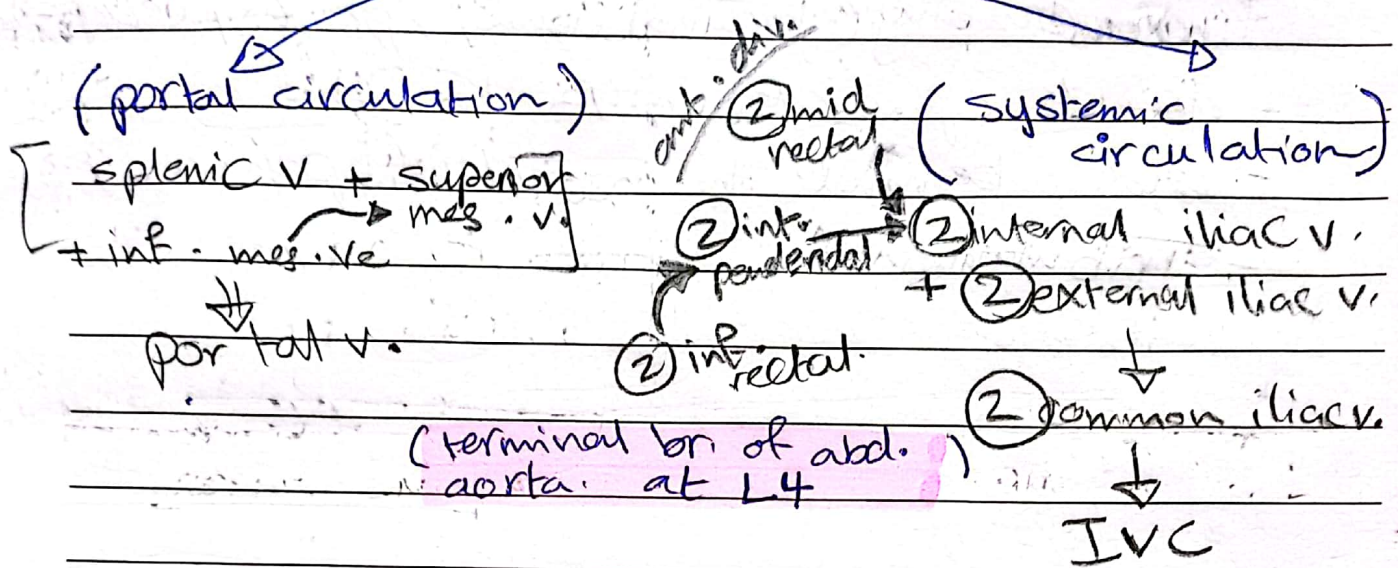 (portal circulation)
splenic v + superior
mes. v.
+ inf. mes. ve
portal v.
ant. div.
② mid
rectal
② int.
pendendal
② inf.
rectal.
(systemic
circulation)
② internal iliac v.
+ ② external iliac v.
② common iliac v.
IVC
(terminal br. of abd.
aorta. at L4)